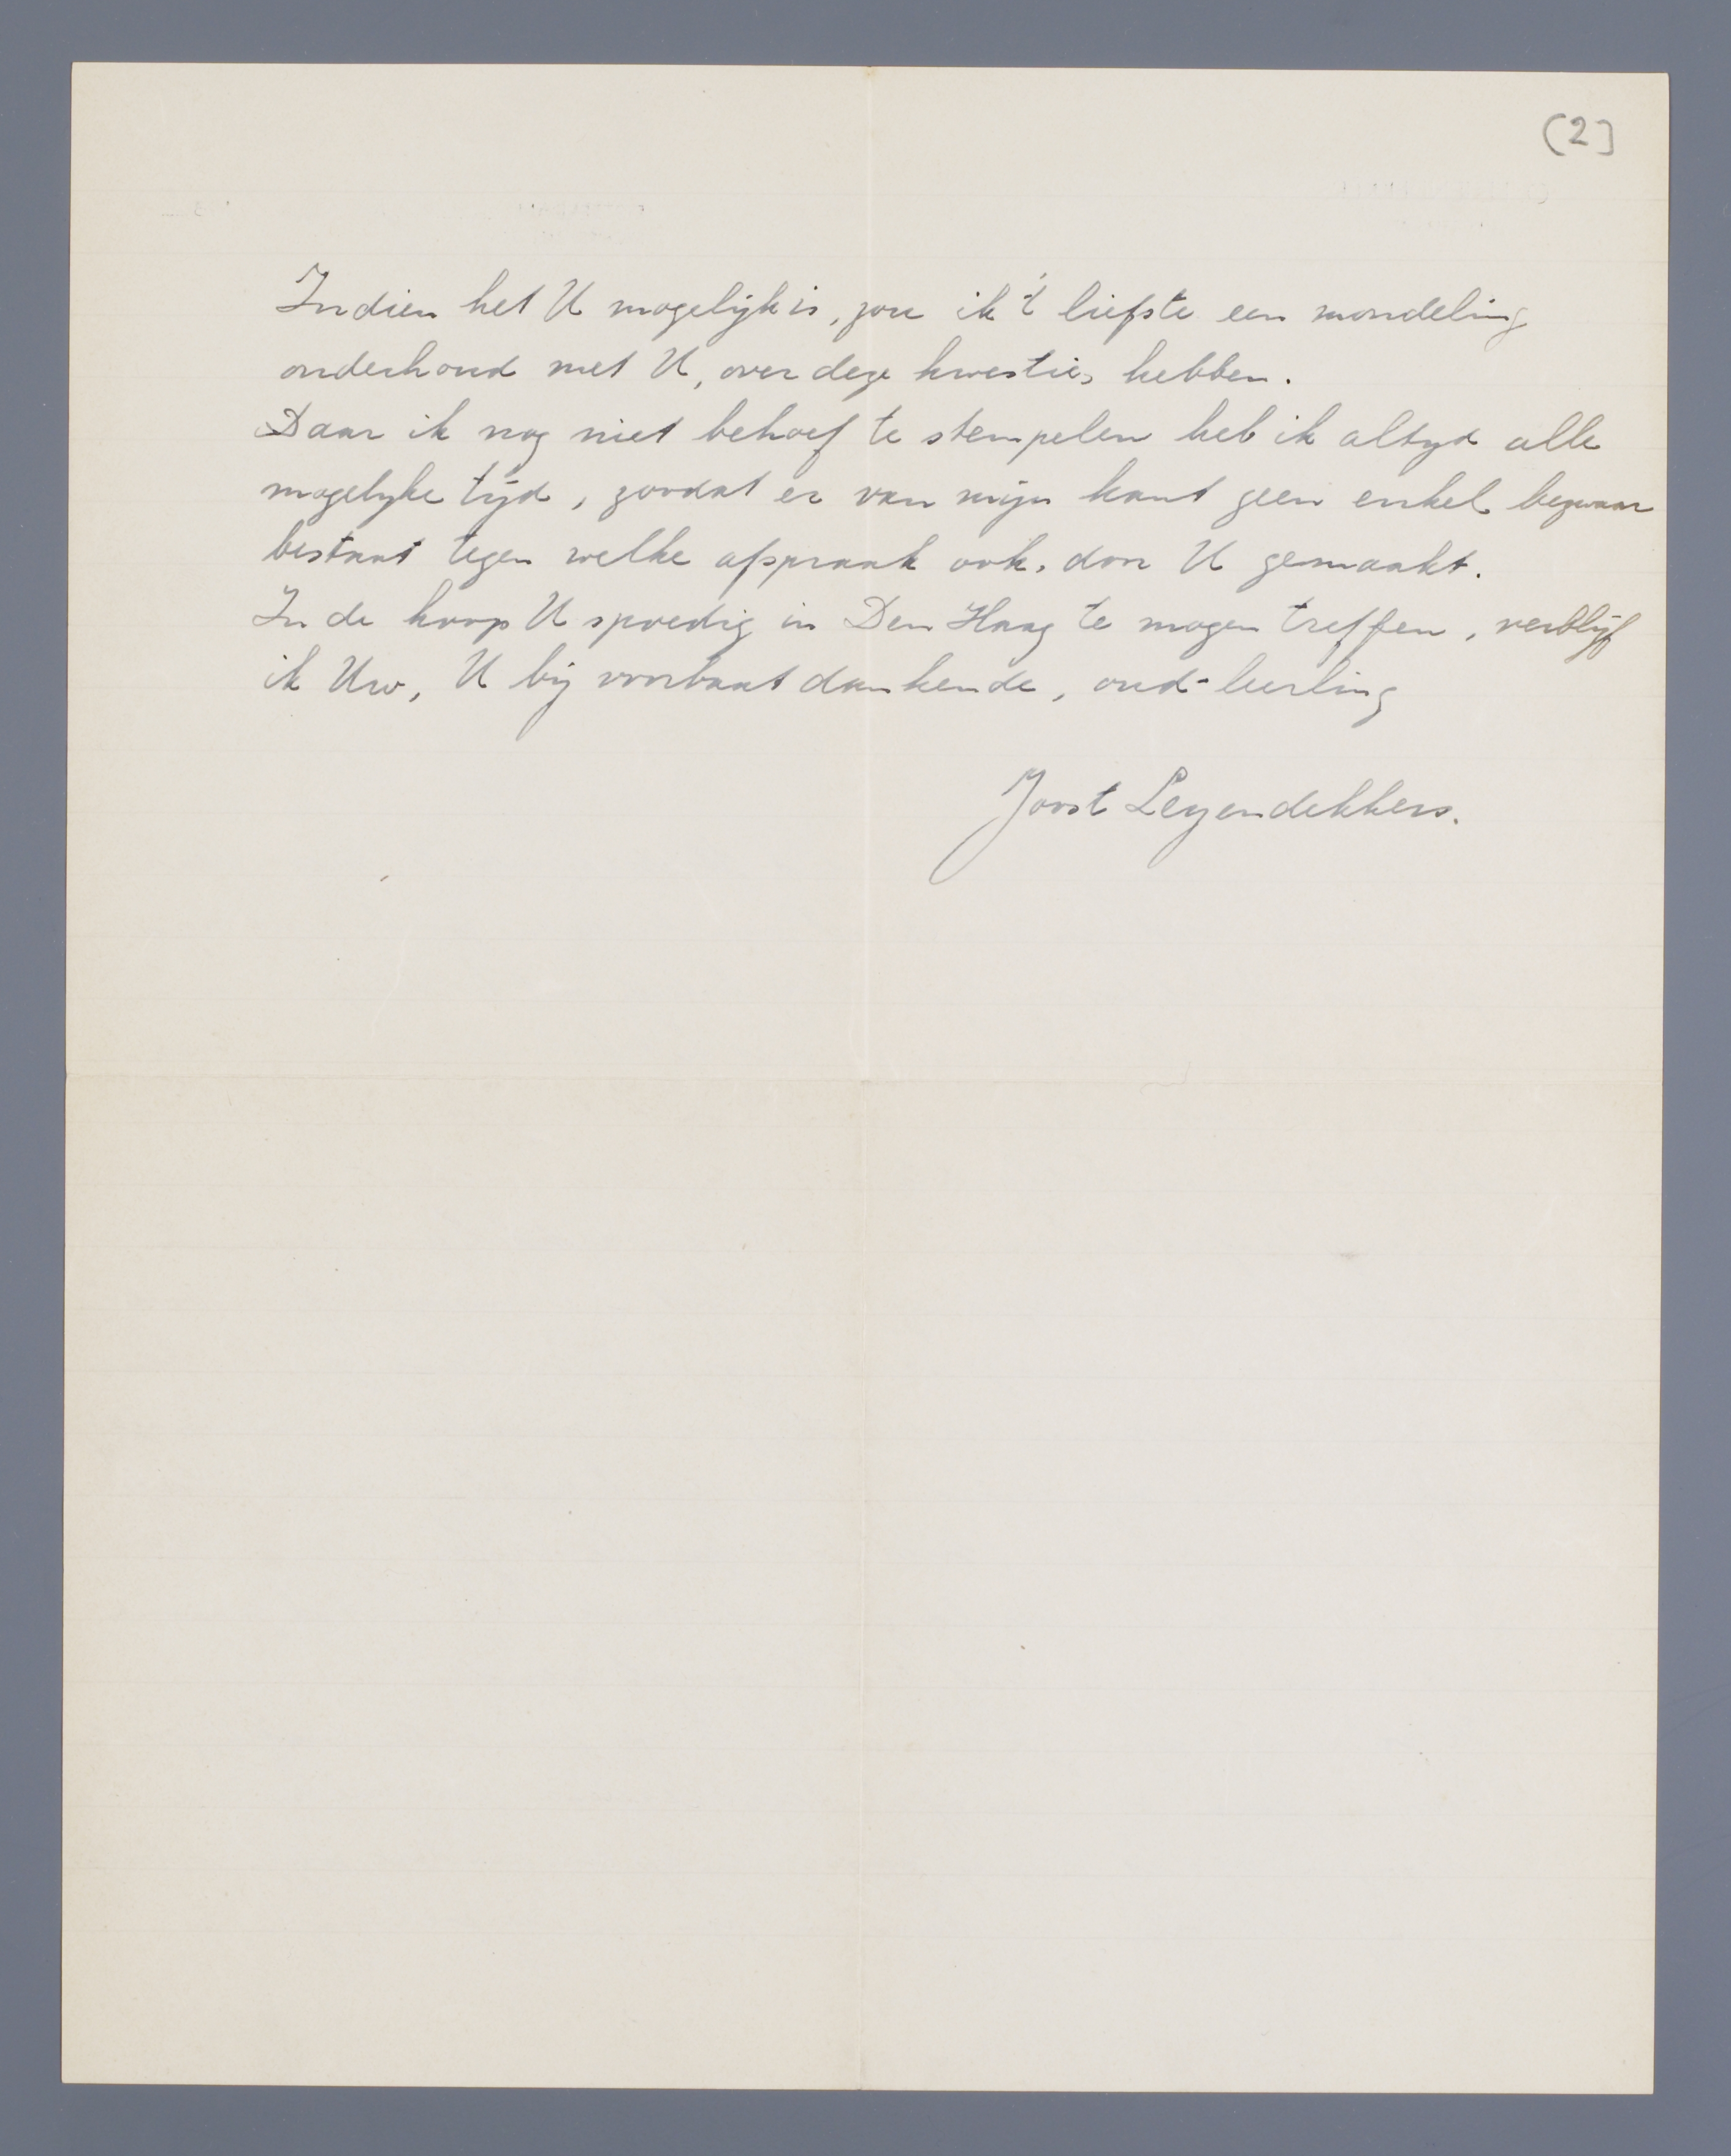 (2]
Indien het U mogelijk is, zou ik 't liefste een mondeling
onderhoud met U, over deze kwesties hebben.
Daar ik nog niet behoef te stempelen heb ik altyd alle
mogelyke tijd, zoodat er van mijn kant geen enkel bezwaar
bestaat tegen welke afspraak ook, door U gemaakt.
In de hoop U spoedig in Den Haag te mogen treffen, verblijf
ik Uw, U bij voorbaat dankende, oud-leerling
Joost Leyendekkers.